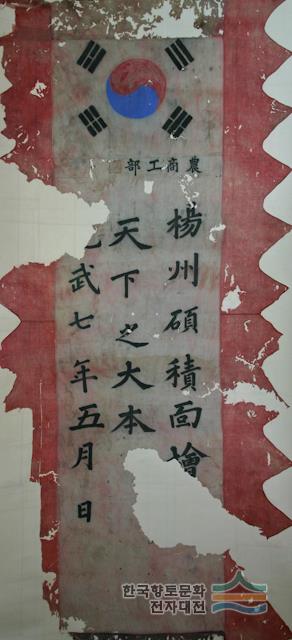 農商工部
楊州碩積面檜
天下之大本
武七年五月 日
한국향토문화
전자대전